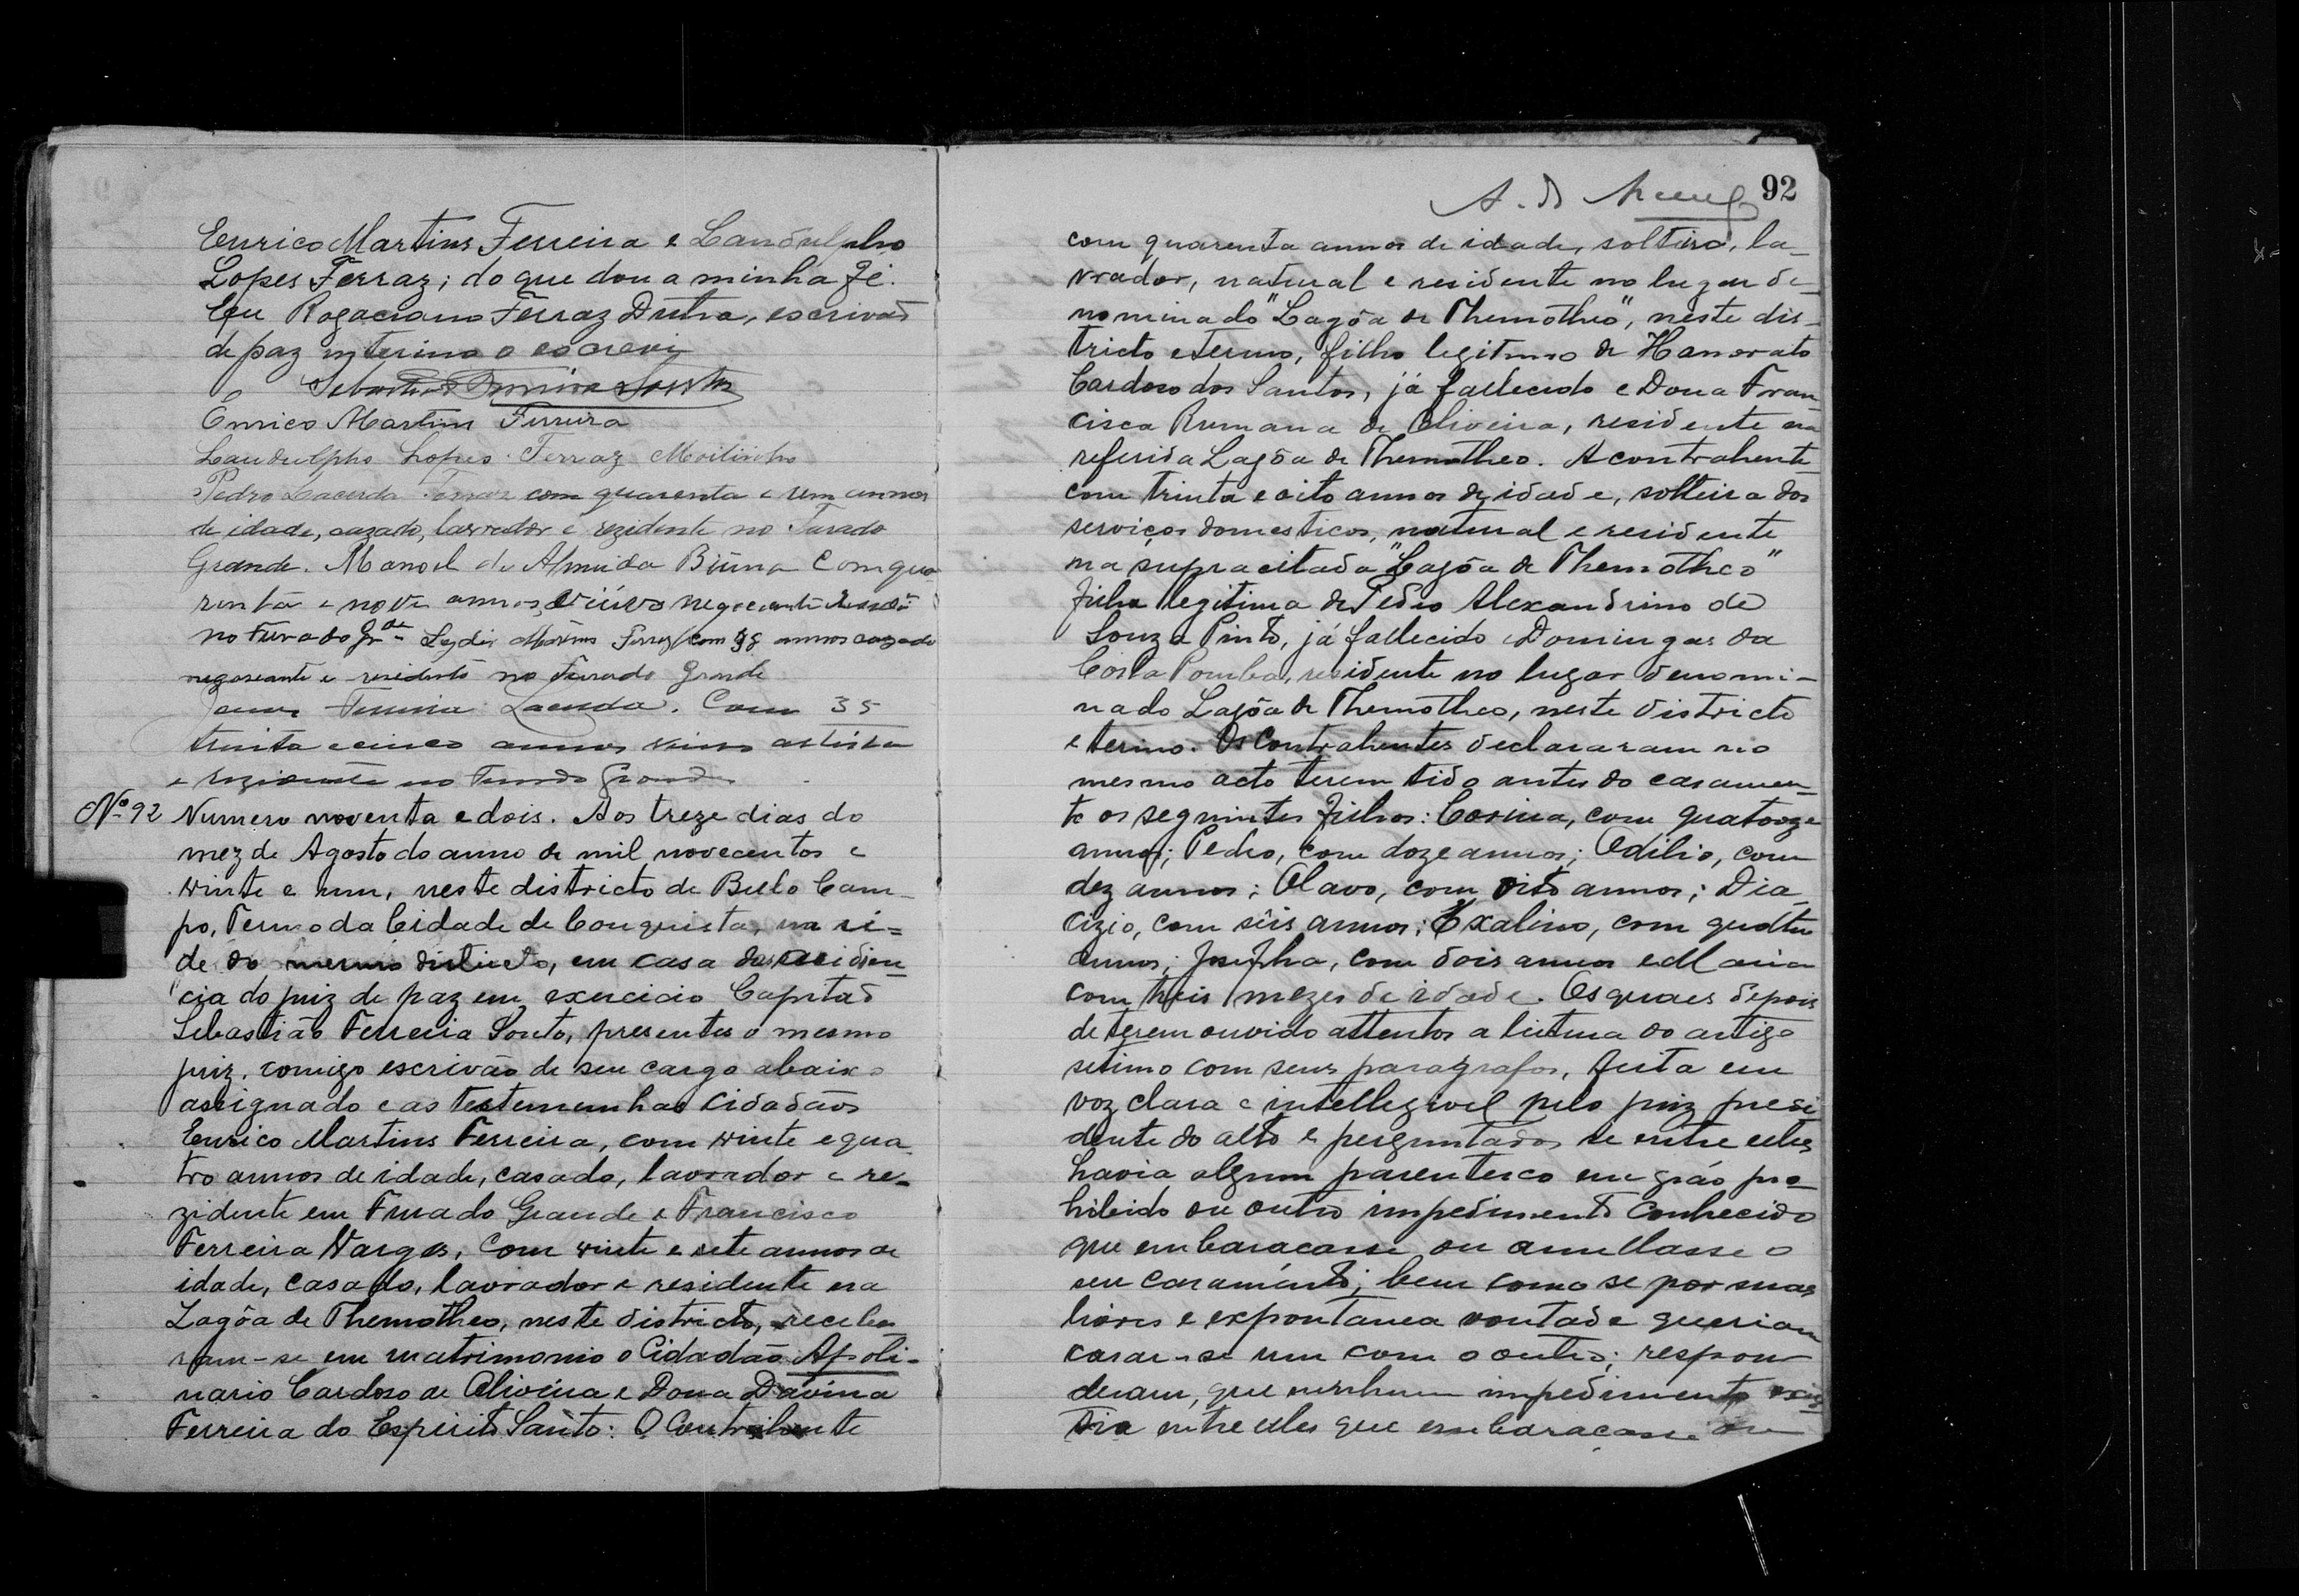 Eurico Martins Ferreira e Landulpho
Lopes Ferraz; do que dou a minha fé.
Eu Rogaciano Ferraz Dutra, escrivão
de paz interino o escrevi
Sebastião Ferreira Souto
Eurico Martins Ferreira
Landulpho Lopes Ferraz Moitinho
Pedro Lacerda Ferraz com quarenta e um annos
de idade, cazado, lavrador e rezidente no Furado
Grande. Manoel de Almeida Com qua
renta e nove annos, viúvo negociante
no Furado Gr.de Ferraz com annos cazado
negoseante e residente no Furado Grande
Ferreira Lacerda. Com 35
trinta e cinco annos artista
e rezidente no Furado Grande
Nº 92 Numero noventa e dois. Aos treze dias do
mez de Agosto do anno de mil novecentos e
vinte e um, neste districto de Bello Cam-
po, Termo da Cidade de Conquista, na sé-
de do mesmo districto, em casa da residen
cia do juiz de paz em exercicio Capitão
Sebastião Ferreira Souto, presentes o mesmo
juiz, comigo escrivão de seu cargo abaixo
assignado e as testemunhas cidadãos
Eurico Martins Ferreira, com vinte e qua
tro annos de idade, casado, lavrador e re-
zidente em Furado Grande e Francisco
Ferreira Vargas, com vinte e sete annos de
idade, casado, lavrador e residente na
Lagôa de Themotheo, neste districto, recebe
ram-se em matrimonio o Cidadão Apoli-
nario Cardoso de Oliveira e Dona Davina
Ferreira do Espirito Santo: O Contrahente
92
com quarenta annos de idade, solteiro, la-
vrador, natural e residente no lugar de-
nominado "Lagôa de Themotheo", neste dis-
tricto e termo, filho legitimo de Honorato
Cardoso dos Santos, já fallecido e Dona Fran-
cisca Rumana de Oliveira, residente na
referida Lagôa de Themotheo. A contrahente
com trinta e oito annos de idade, solteira dos
serviços domesticos, natural e residente
na supracitada "Lagôa de Themotheo"
filha legitima de Pedro Alexandrino de
Souza Pinto, já fallecido e Domingas da
Costa Pomba, residente no lugar denomi-
nado Lagôa de Themotheo, neste districto
e termo. Os Contrahentes declararam no
mesmo acto terem tido antes do casamen-
to os seguintes filhos: Corina, com quatorze
annos; Pedro, com doze annos; Odilio, com
dez annos; Olavo, com oito annos; Dia-
cizio, com seis annos; Exalino, com quatro
annos; Josepha, com dois annos e Maria
com treis mezes de idade. Os quaes depois
de terem ouvido attentos a leitura do artigo
setimo com seus paragrafos, feita em
voz clara e intellegivel pelo juiz presi
dente do acto e perguntados se entre elles
havia algum parentesco em gráo pro-
hibido ou outro impedimento conhecido
que embaracasse ou anullasse o
seu casamento; bem como se por suas
livres e expontanea vontade queriam
casar-se um com o outro; respon
deram, que nenhum impedimento exis
tia entre elles que embaraçasse ou